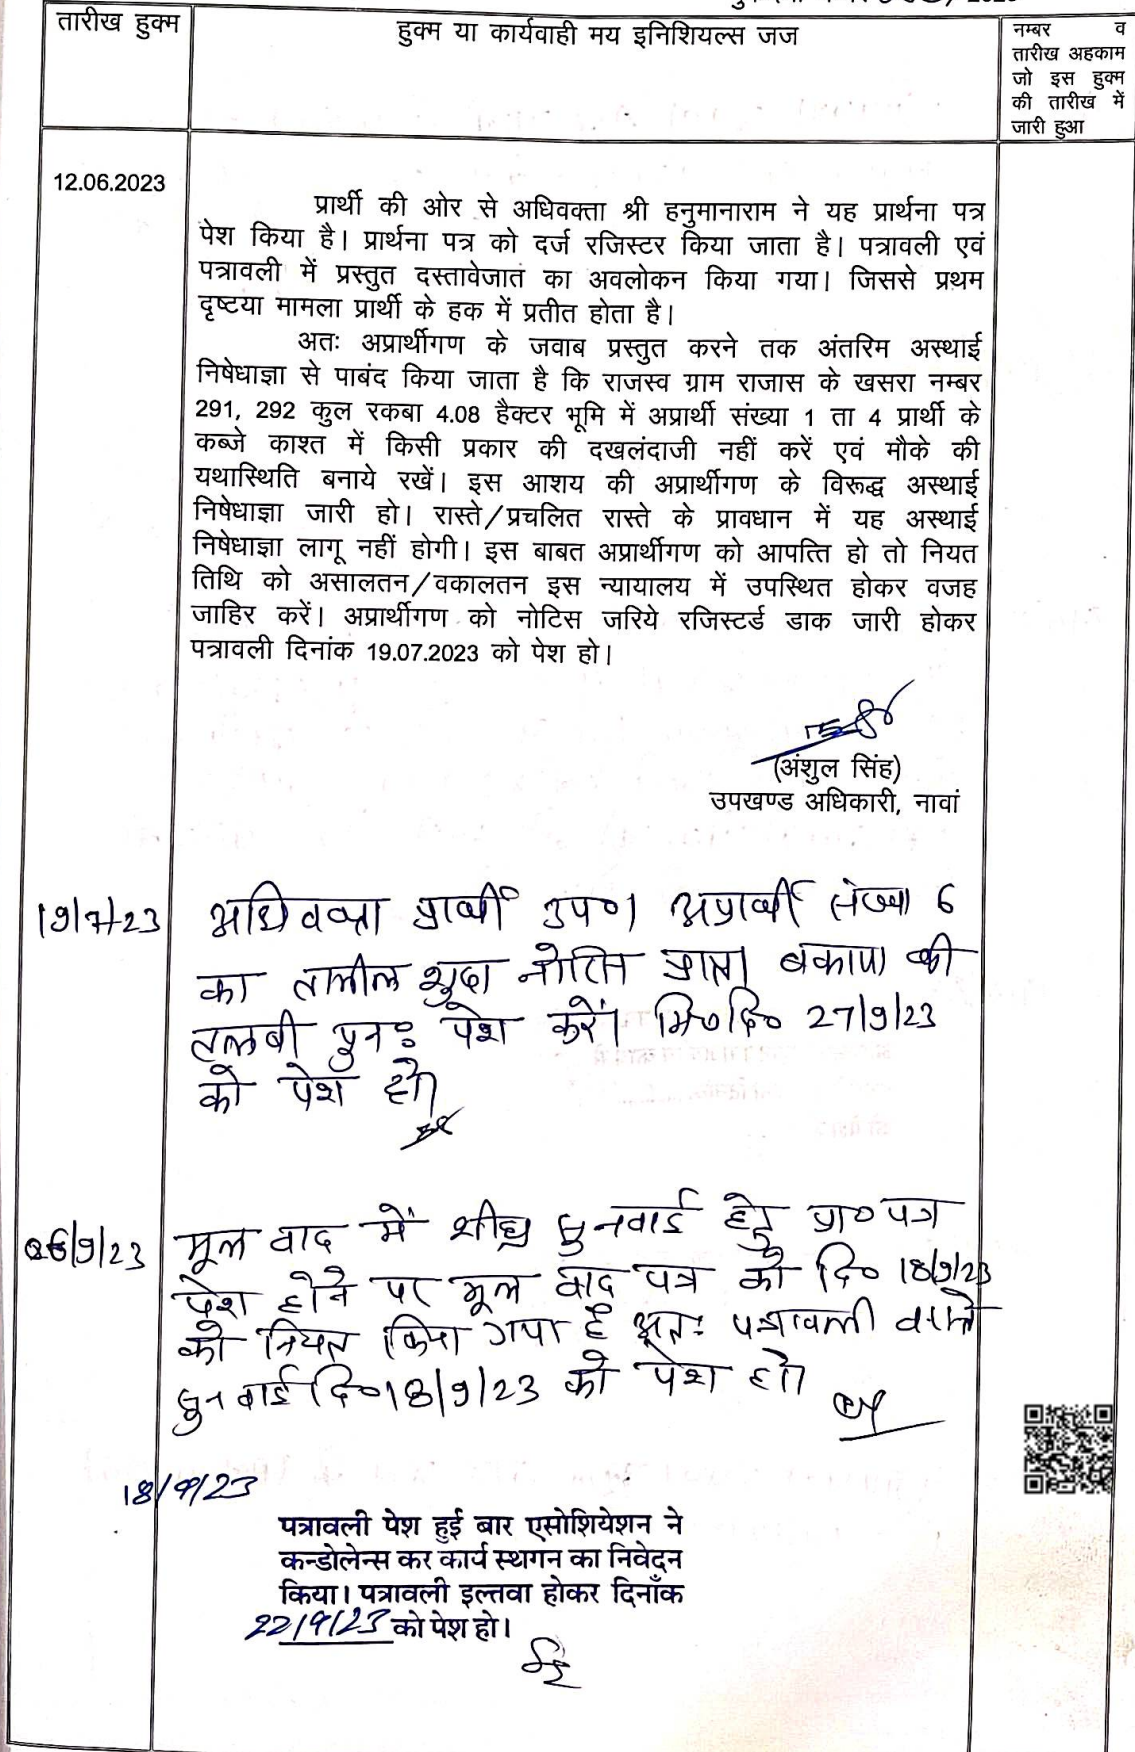 तारीख हुक्म
हुक्म या कार्यवाही मय इनिशियल्स जज
नम्बर व
तारीख अहकाम
जो इस हुक्म
की तारीख में
जारी हुआ
12.06.2023
प्रार्थी की ओर से अधिवक्ता श्री हनुमानाराम ने यह प्रार्थना पत्र
पेश किया है। प्रार्थना पत्र को दर्ज रजिस्टर किया जाता है। पत्रावली एवं
पत्रावली में प्रस्तुत दस्तावेजात का अवलोकन किया गया। जिससे प्रथम
दृष्टया मामला प्रार्थी के हक में प्रतीत होता है।
अतः अप्रार्थीगण के जवाब प्रस्तुत करने तक अंतरिम अस्थाई
निषेधाज्ञा से पाबंद किया जाता है कि राजस्व ग्राम राजास के खसरा नम्बर
291, 292 कुल रकबा 4.08 हैक्टर भूमि में अप्रार्थी संख्या 1 ता 4 प्रार्थी के
कब्जे काश्त में किसी प्रकार की दखलंदाजी नहीं करें एवं मौके की
यथास्थिति बनाये रखें। इस आशय की अप्रार्थीगण के विरूद्ध अस्थाई
निषेधाज्ञा जारी हो। रास्ते/प्रचलित रास्ते के प्रावधान में यह अस्थाई
निषेधाज्ञा लागू नहीं होगी। इस बाबत अप्रार्थीगण को आपत्ति हो तो नियत
तिथि को असालतन/वकालतन इस न्यायालय में उपस्थित होकर वजह
जाहिर करें। अप्रार्थीगण को नोटिस जरिये रजिस्टर्ड डाक जारी होकर
पत्रावली दिनांक 19.07.2023 को पेश हो।
(अंशुल सिंह)
उपखण्ड अधिकारी, नावां
19/7/23 अधिवक्ता प्रार्थी उप०। अप्रार्थी संख्या 6
का तामील शुदा नोटिस प्राप्त। बकाया की
तलबी पुनः पेश करें। मि०दि० 27/9/23
को पेश हो।
06/9/23 मूल वाद में शीघ्र सुनवाई हेतु प्रा०पत्र
पेश होने पर मूल वाद पत्र को दि० 18/9/23
को नियत किया गया है अतः पत्रावली वास्ते
सुनवाई दि०18/9/23 को पेश हो।
18/9/23
पत्रावली पेश हुई बार एसोशियेशन ने
कन्डोलेन्स कर कार्य स्थगन का निवेदन
किया। पत्रावली इल्तवा होकर दिनाँक
22/9/23 को पेश हो।